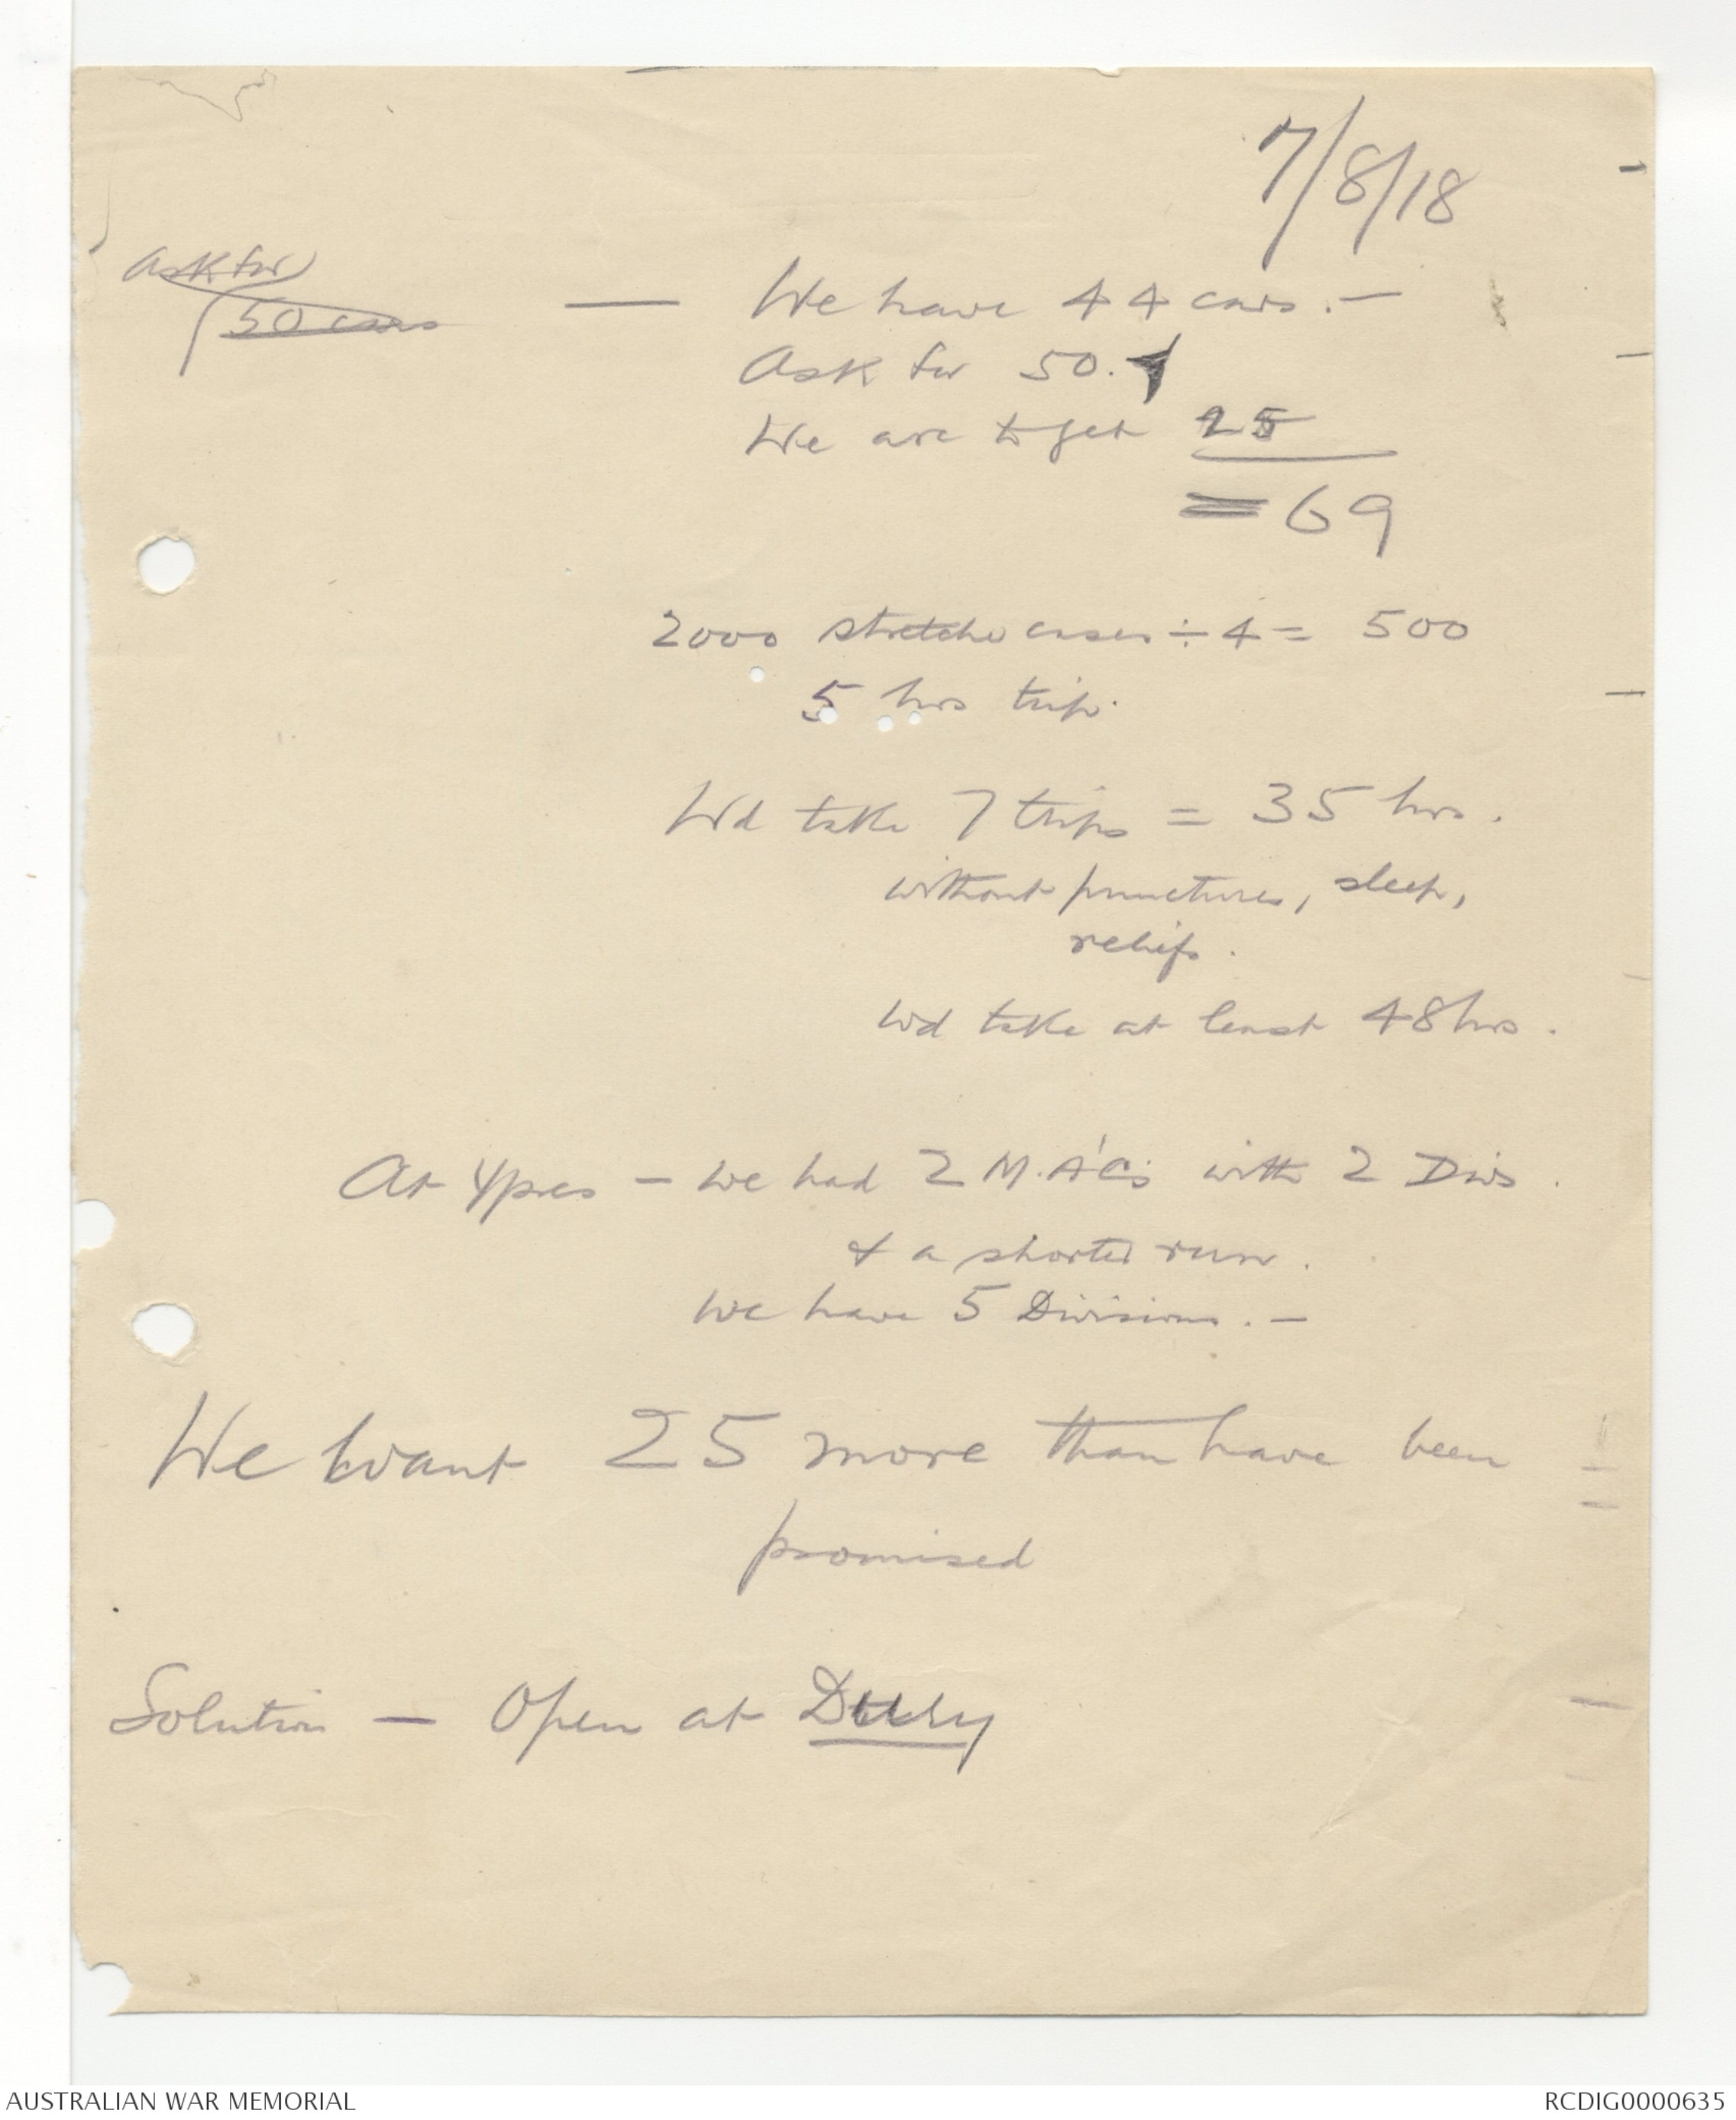 7/8/18
Ask for
50 cars
— We have 44 cars. —
Ask for 50.
We are to get 25
= 69
2000 stretcher cases ÷ 4 = 500
5 hrs trip.
Wd take 7 trips = 35 hrs.
without punctures, sleep,
reliefs.
Wd take at least 48 hrs.
At Ypres — We had 2 M.A'C's with 2 Divs.
& a shorter run.
We have 5 Divisions. —
We want 25 more than have been
promised
Solution — Open at Dury
AUSTRALIAN WAR MEMORIAL
RCDIG0000635